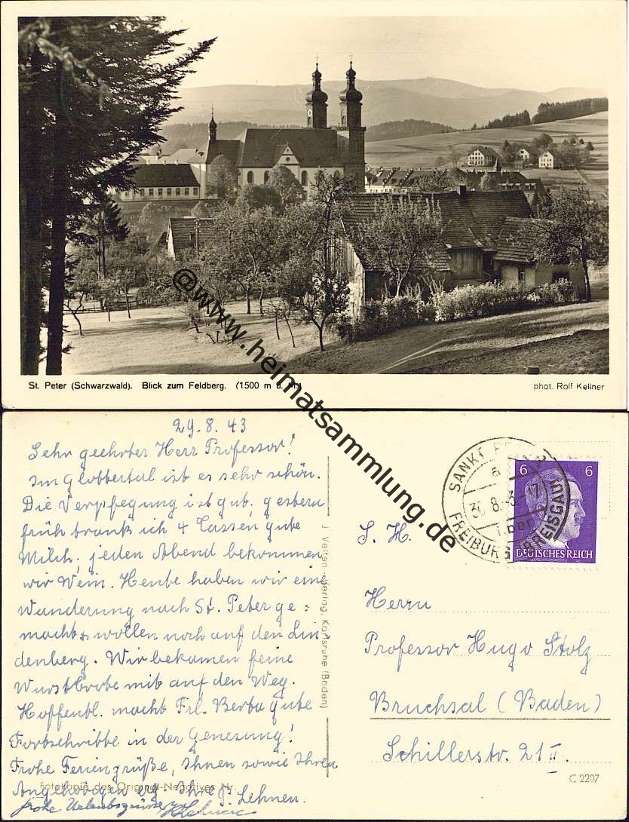 St. Peter (Schwarzwald). Blick zum Feldberg. (1500 m ü. M.)
phot. Rolf Kellner
@www.heimatsammlung.de
29.8.43
Sehr geehrter Herr Professor!
Im Glottertal ist es sehr schön.
Die Verpflegung ist gut, gestern
früh trank ich 4 Tassen gute
Milch, jeden Abend bekommen
wir Wein. Heute haben wir eine
Wanderung nach St. Peter ge=
macht u. wollen noch auf den Lin
denberg. Wir bekamen feine
Wurstbrote mit auf den Weg.
Hoffentl. macht Frl. Berta gute
Fortschritte in der Genesung!
Frohe Feriengrüße, Ihnen sowie Ihren
Angehörigen
Lehnen.
frohe Urlaubsgrüsse
Fotokopie des Original-Negatives Nr.
J. Verlag Karlsruhe (Baden)
SANKT PETER
a
30.8.43
FREIBURG (BREISGAU)
6 6
DEUTSCHES REICH
S. H.
Herrn
Professor Hugo Stolz
Bruchsal (Baden)
Schillerstr. 21 II
C 2297